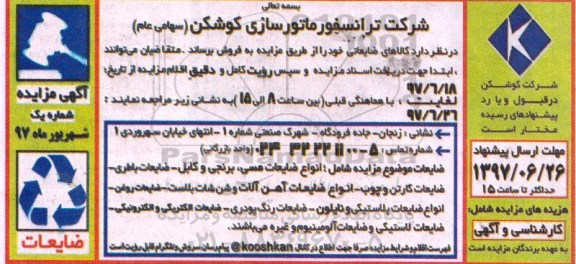 بسمه تعالی
شرکت ترانسفورماتورسازی کوشکن (سهامی عام)
درنظر دارد کالاهای ضایعاتی خود را از طریق مزایده به فروش برساند . متقاضیان می‌توانند
، ابتدا جهت دریافت اسناد مزایده و سپس رویت کامل و دقیق اقلام مزایده از تاریخ:
۹۷/۶/۱۸ لغایت ۹۷/۶/۲۶ ، با هماهنگی قبلی (بین ساعت ۸ الی ۱۵) به نشانی زیر مراجعه نمایند :
نشانی : زنجان - جاده فرودگاه - شهرک صنعتی شماره ۱ - انتهای خیابان سهروردی ۱
شماره تماس : ۵-۳۲۲۲۱۱۰۰ ۰۲۴ (واحد بازرگانی)
ضایعات موضوع مزایده شامل : انواع ضایعات مسی، برنجی و کابل - ضایعات باطری -
ضایعات کارتن و چوب - انواع ضایعات آهن آلات و شن شات بلاست - ضایعات روغن -
انواع ضایعات پلاستیکی و نایلون - ضایعات رنگ پودری - ضایعات الکتریکی و الکترونیکی -
ضایعات لاستیکی و ضایعات آلومینیوم و غیره می‌باشند.
فهرست اقلام و شرایط مزایده صرفا جهت اطلاع در کانال kooshkan@ پیام رسان سروش و تلگرام قابل رویت است
شرکت کوشکن
در قبول و یا رد
پیشنهادهای رسیده
مختار است
مهلت ارسال پیشنهاد
۱۳۹۷/۰۶/۲۶
حداکثر تا ساعت ۱۵
هزینه های مزایده شامل:
کارشناسی و آگهی
به عهده برندگان مزایده است
آگهی مزایده
شماره یک
شهریور ماه ۹۷
ضایعات